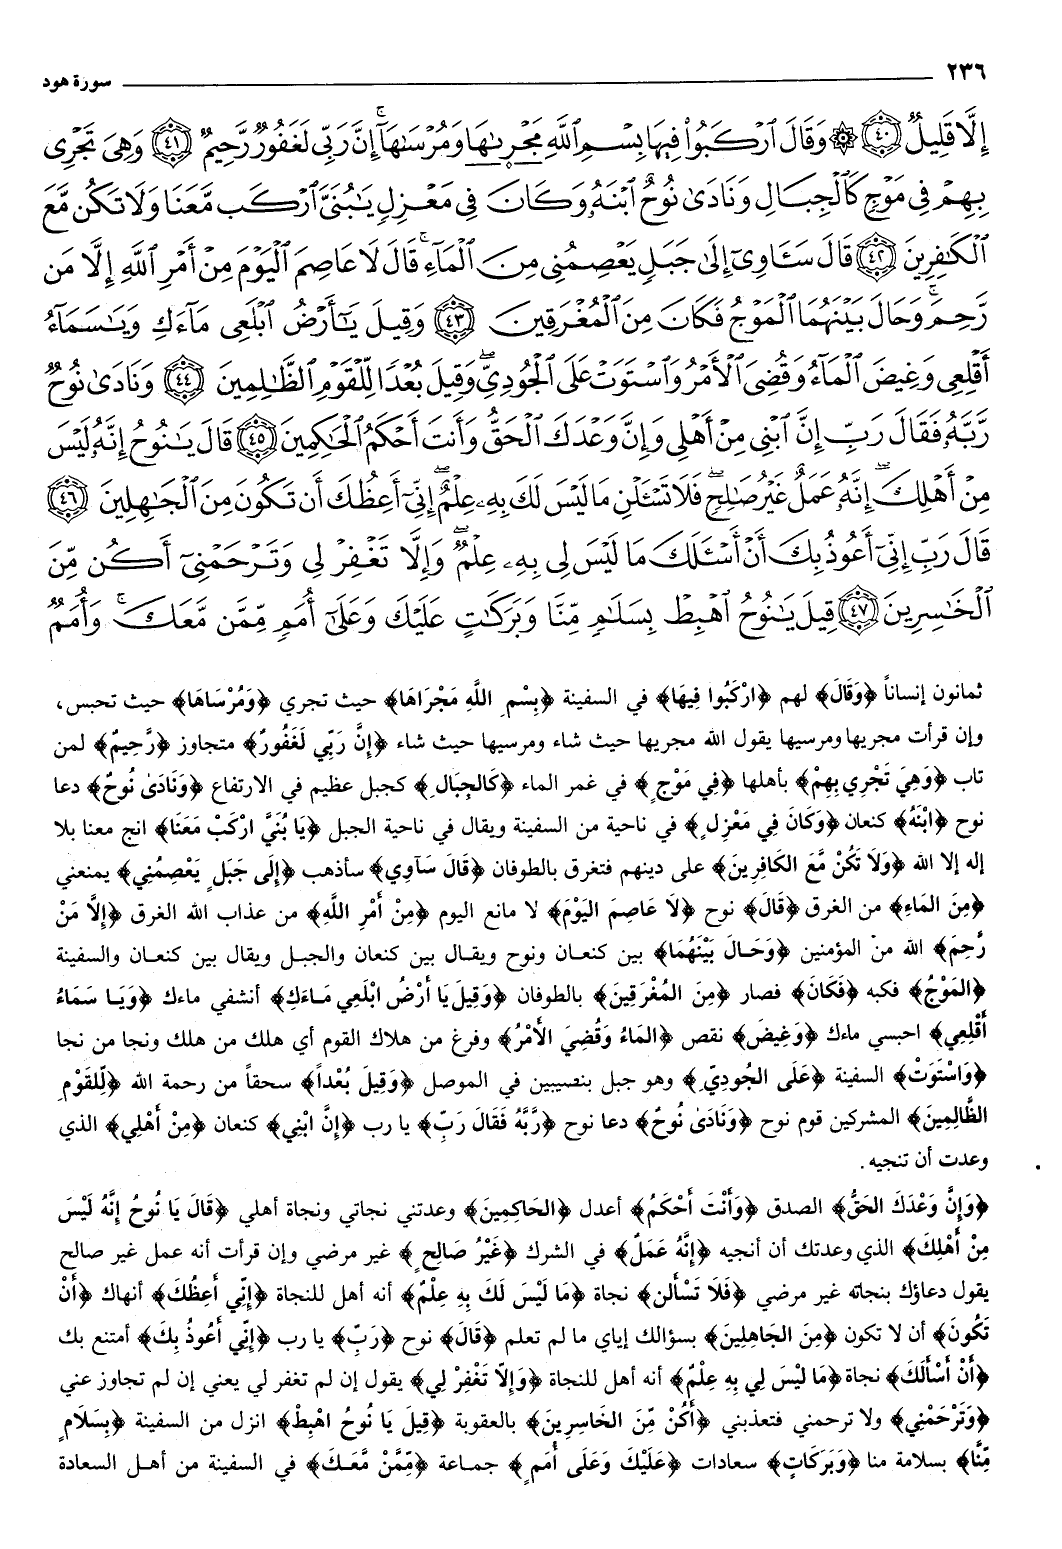 ٢٣٦ سورة هود
إِلَّا قَلِيلٌ ﴿٤٠﴾ ۞ وَقَالَ ٱرْكَبُوا۟ فِيهَا بِسْمِ ٱللَّهِ مَجْر۪ىٰهَا وَمُرْسَىٰهَآ ۚ إِنَّ رَبِّى لَغَفُورٌ رَّحِيمٌ ﴿٤١﴾ وَهِىَ تَجْرِى
بِهِمْ فِى مَوْجٍ كَٱلْجِبَالِ وَنَادَىٰ نُوحٌ ٱبْنَهُۥ وَكَانَ فِى مَعْزِلٍ يَٰبُنَىَّ ٱرْكَب مَّعَنَا وَلَا تَكُن مَّعَ
ٱلْكَٰفِرِينَ ﴿٤٢﴾ قَالَ سَـَٔاوِىٓ إِلَىٰ جَبَلٍ يَعْصِمُنِى مِنَ ٱلْمَآءِ ۚ قَالَ لَا عَاصِمَ ٱلْيَوْمَ مِنْ أَمْرِ ٱللَّهِ إِلَّا مَن
رَّحِمَ ۚ وَحَالَ بَيْنَهُمَا ٱلْمَوْجُ فَكَانَ مِنَ ٱلْمُغْرَقِينَ ﴿٤٣﴾ وَقِيلَ يَٰٓأَرْضُ ٱبْلَعِى مَآءَكِ وَيَٰسَمَآءُ
أَقْلِعِى وَغِيضَ ٱلْمَآءُ وَقُضِىَ ٱلْأَمْرُ وَٱسْتَوَتْ عَلَى ٱلْجُودِىِّ ۖ وَقِيلَ بُعْدًا لِّلْقَوْمِ ٱلظَّٰلِمِينَ ﴿٤٤﴾ وَنَادَىٰ نُوحٌ
رَّبَّهُۥ فَقَالَ رَبِّ إِنَّ ٱبْنِى مِنْ أَهْلِى وَإِنَّ وَعْدَكَ ٱلْحَقُّ وَأَنتَ أَحْكَمُ ٱلْحَٰكِمِينَ ﴿٤٥﴾ قَالَ يَٰنُوحُ إِنَّهُۥ لَيْسَ
مِنْ أَهْلِكَ ۖ إِنَّهُۥ عَمَلٌ غَيْرُ صَٰلِحٍ ۖ فَلَا تَسْـَٔلْنِ مَا لَيْسَ لَكَ بِهِۦ عِلْمٌ ۖ إِنِّىٓ أَعِظُكَ أَن تَكُونَ مِنَ ٱلْجَٰهِلِينَ ﴿٤٦﴾
قَالَ رَبِّ إِنِّىٓ أَعُوذُ بِكَ أَنْ أَسْـَٔلَكَ مَا لَيْسَ لِى بِهِۦ عِلْمٌ ۖ وَإِلَّا تَغْفِرْ لِى وَتَرْحَمْنِىٓ أَكُن مِّنَ
ٱلْخَٰسِرِينَ ﴿٤٧﴾ قِيلَ يَٰنُوحُ ٱهْبِطْ بِسَلَٰمٍ مِّنَّا وَبَرَكَٰتٍ عَلَيْكَ وَعَلَىٰٓ أُمَمٍ مِّمَّن مَّعَكَ ۚ وَأُمَمٌ
ثمانون إنساناً ﴿وَقَالَ﴾ لهم ﴿ارْكَبُوا فِيهَا﴾ في السفينة ﴿بِسْمِ اللَّهِ مَجْرَاهَا﴾ حيث تجري ﴿وَمُرْسَاهَا﴾ حيث تحبس،
وإن قرأت مجريها ومرسيها يقول الله مجريها حيث شاء ومرسيها حيث شاء ﴿إِنَّ رَبِّي لَغَفُورٌ﴾ متجاوز ﴿رَّحِيمٌ﴾ لمن
تاب ﴿وَهِيَ تَجْرِي بِهِمْ﴾ بأهلها ﴿فِي مَوْجٍ﴾ في غمر الماء ﴿كَالجِبَالِ﴾ كجبل عظيم في الارتفاع ﴿وَنَادَىٰ نُوحٌ﴾ دعا
نوح ﴿ابْنَهُ﴾ كنعان ﴿وَكَانَ فِي مَعْزِلٍ﴾ في ناحية من السفينة ويقال في ناحية الجبل ﴿يَا بُنَيَّ ارْكَبْ مَعَنَا﴾ انج معنا بلا
إله إلا الله ﴿وَلَا تَكُنْ مَّعَ الكَافِرِينَ﴾ على دينهم فتغرق بالطوفان ﴿قَالَ سَآوِي﴾ سأذهب ﴿إِلَى جَبَلٍ يَعْصِمُنِي﴾ يمنعني
﴿مِنَ المَاءِ﴾ من الغرق ﴿قَالَ﴾ نوح ﴿لَا عَاصِمَ اليَوْمَ﴾ لا مانع اليوم ﴿مِنْ أَمْرِ اللَّهِ﴾ من عذاب الله الغرق ﴿إِلَّا مَنْ
رَّحِمَ﴾ الله من المؤمنين ﴿وَحَالَ بَيْنَهُمَا﴾ بين كنعان ونوح ويقال بين كنعان والجبل ويقال بين كنعان والسفينة
﴿المَوْجُ﴾ فكبه ﴿فَكَانَ﴾ فصار ﴿مِنَ المُغْرَقِينَ﴾ بالطوفان ﴿وَقِيلَ يَا أَرْضُ ابْلَعِي مَاءَكِ﴾ أنشفي ماءك ﴿وَيَا سَمَاءُ
أَقْلِعِي﴾ احبسي ماءك ﴿وَغِيضَ﴾ نقص ﴿المَاءُ وَقُضِيَ الأَمْرُ﴾ وفرغ من هلاك القوم أي هلك من هلك ونجا من نجا
﴿وَاسْتَوَتْ﴾ السفينة ﴿عَلَى الجُودِيِّ﴾ وهو جبل بنصيبين في الموصل ﴿وَقِيلَ بُعْداً﴾ سحقاً من رحمة الله ﴿لِّلقَوْمِ
الظَّالِمِينَ﴾ المشركين قوم نوح ﴿وَنَادَىٰ نُوحٌ﴾ دعا نوح ﴿رَّبَّهُ فَقَالَ رَبِّ﴾ يا رب ﴿إِنَّ ابْنِي﴾ كنعان ﴿مِنْ أَهْلِي﴾ الذي
وعدت أن تنجيه.
﴿وَإِنَّ وَعْدَكَ الحَقُّ﴾ الصدق ﴿وَأَنْتَ أَحْكَمُ﴾ أعدل ﴿الحَاكِمِينَ﴾ وعدتني نجاتي ونجاة أهلي ﴿قَالَ يَا نُوحُ إِنَّهُ لَيْسَ
مِنْ أَهْلِكَ﴾ الذي وعدتك أن أنجيه ﴿إِنَّهُ عَمَلٌ﴾ في الشرك ﴿غَيْرُ صَالِحٍ﴾ غير مرضي وإن قرأت أنه عمل غير صالح
يقول دعاؤك بنجاته غير مرضي ﴿فَلَا تَسْأَلنِ﴾ نجاة ﴿مَا لَيْسَ لَكَ بِهِ عِلْمٌ﴾ أنه أهل للنجاة ﴿إِنِّي أَعِظُكَ﴾ أنهاك ﴿أَنْ
تَكُونَ﴾ أن لا تكون ﴿مِنَ الجَاهِلِينَ﴾ بسؤالك إياي ما لم تعلم ﴿قَالَ﴾ نوح ﴿رَبِّ﴾ يا رب ﴿إِنِّي أَعُوذُ بِكَ﴾ أمتنع بك
﴿أَنْ أَسْأَلَكَ﴾ نجاة ﴿مَا لَيْسَ لِي بِهِ عِلْمٌ﴾ أنه أهل للنجاة ﴿وَإِلَّا تَغْفِرْ لِي﴾ يقول إن لم تغفر لي يعني إن لم تجاوز عني
﴿وَتَرْحَمْنِي﴾ ولا ترحمني فتعذبني ﴿أَكُنْ مِّنَ الخَاسِرِينَ﴾ بالعقوبة ﴿قِيلَ يَا نُوحُ اهْبِطْ﴾ انزل من السفينة ﴿بِسَلَامٍ
مِّنَّا﴾ بسلامة منا ﴿وَبَرَكَاتٍ﴾ سعادات ﴿عَلَيْكَ وَعَلَى أُمَمٍ﴾ جماعة ﴿مِّمَّنْ مَّعَكَ﴾ في السفينة من أهل السعادة